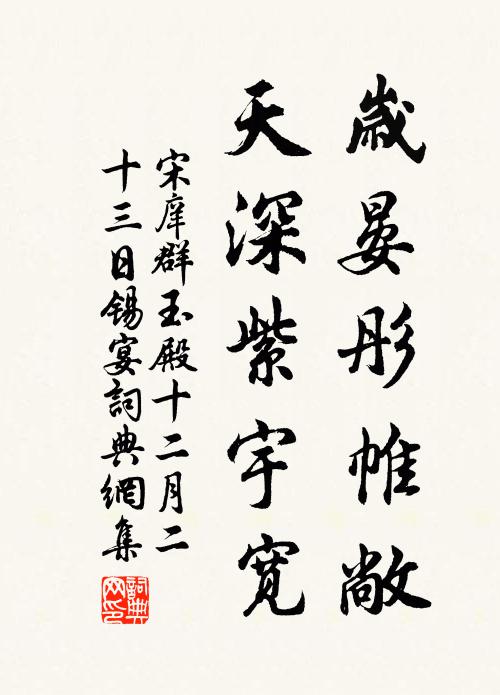 歲晏彤帷敞
天深紫宇寬
宋庠群玉殿十二月二
十三日錫宴詞典網集
詞典
网印